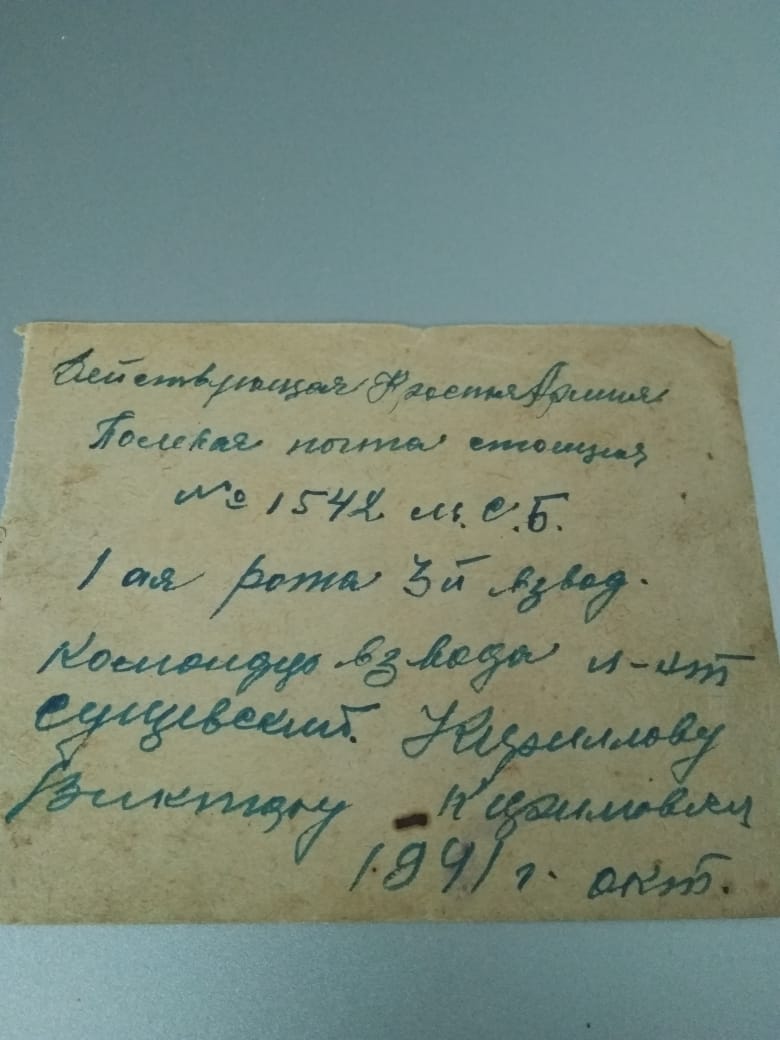 Действующая Красная Армия
Полевая почта станция
№ 1542 м.С.Б.
1 ая рота 3й взвод.
Командир взвода л-нт
Сущевский. Кириллову
Виктору Кириловичу
1941 г. окт.